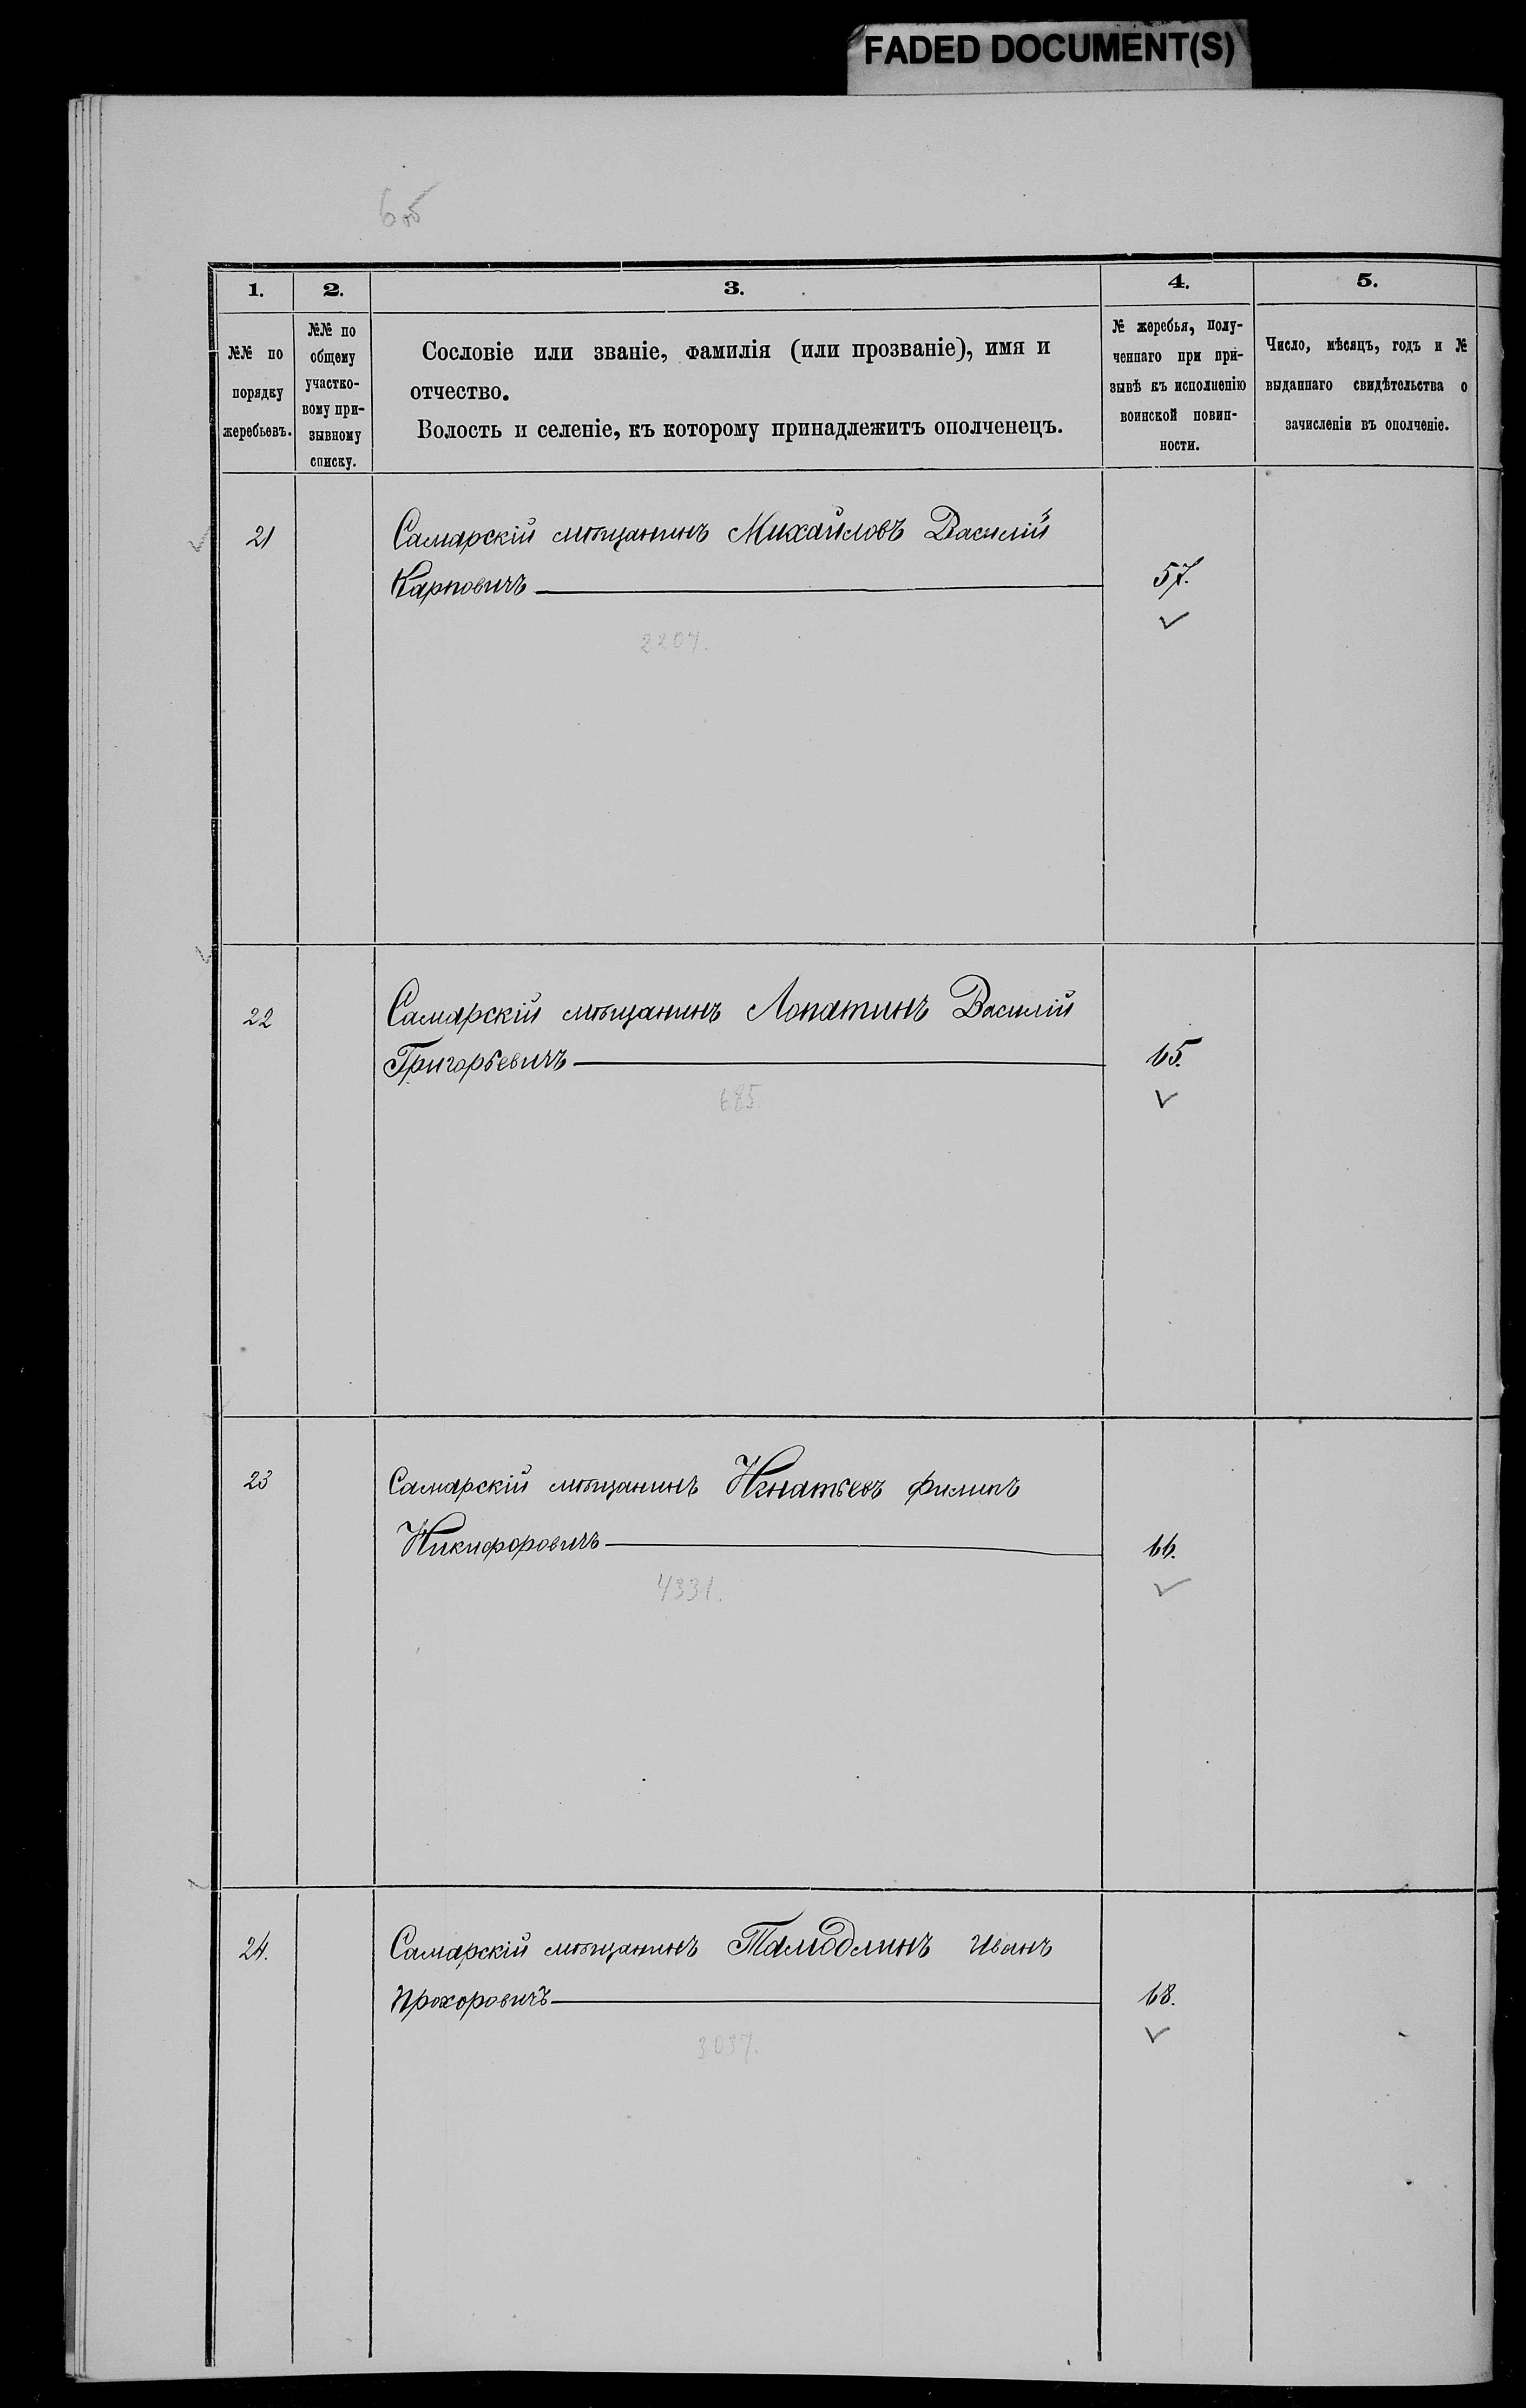 FADED DOCUMENT(S)
1. 2. 3. 4. 5.
№№ по порядку жеребьевъ.
№№ по общему участко-вому при-зывному списку.
Сословіе или званіе, фамилія (или прозваніе), имя и
отчество.
Волость и селеніе, къ которому принадлежитъ ополченецъ.
№ жеребья, полу-
ченнаго при при-
зывѣ къ исполненію
воинской повин-
ности.
Число, мѣсяцъ, годъ и №
выданнаго свидѣтельства о
зачисленіи въ ополченіе.
21 Самарскій мѣщанинъ Михайловъ Василій
Карповичъ 57.
2207.
22 Самарскій мѣщанинъ Лопатинъ Василій
Григорьевичъ 65.
685
23 Самарскій мѣщанинъ Игнатьевъ Филипъ
Никифоровичъ 66.
4331.
24. Самарскій мѣщанинъ Иванъ
Прохоровичъ 68.
3037.